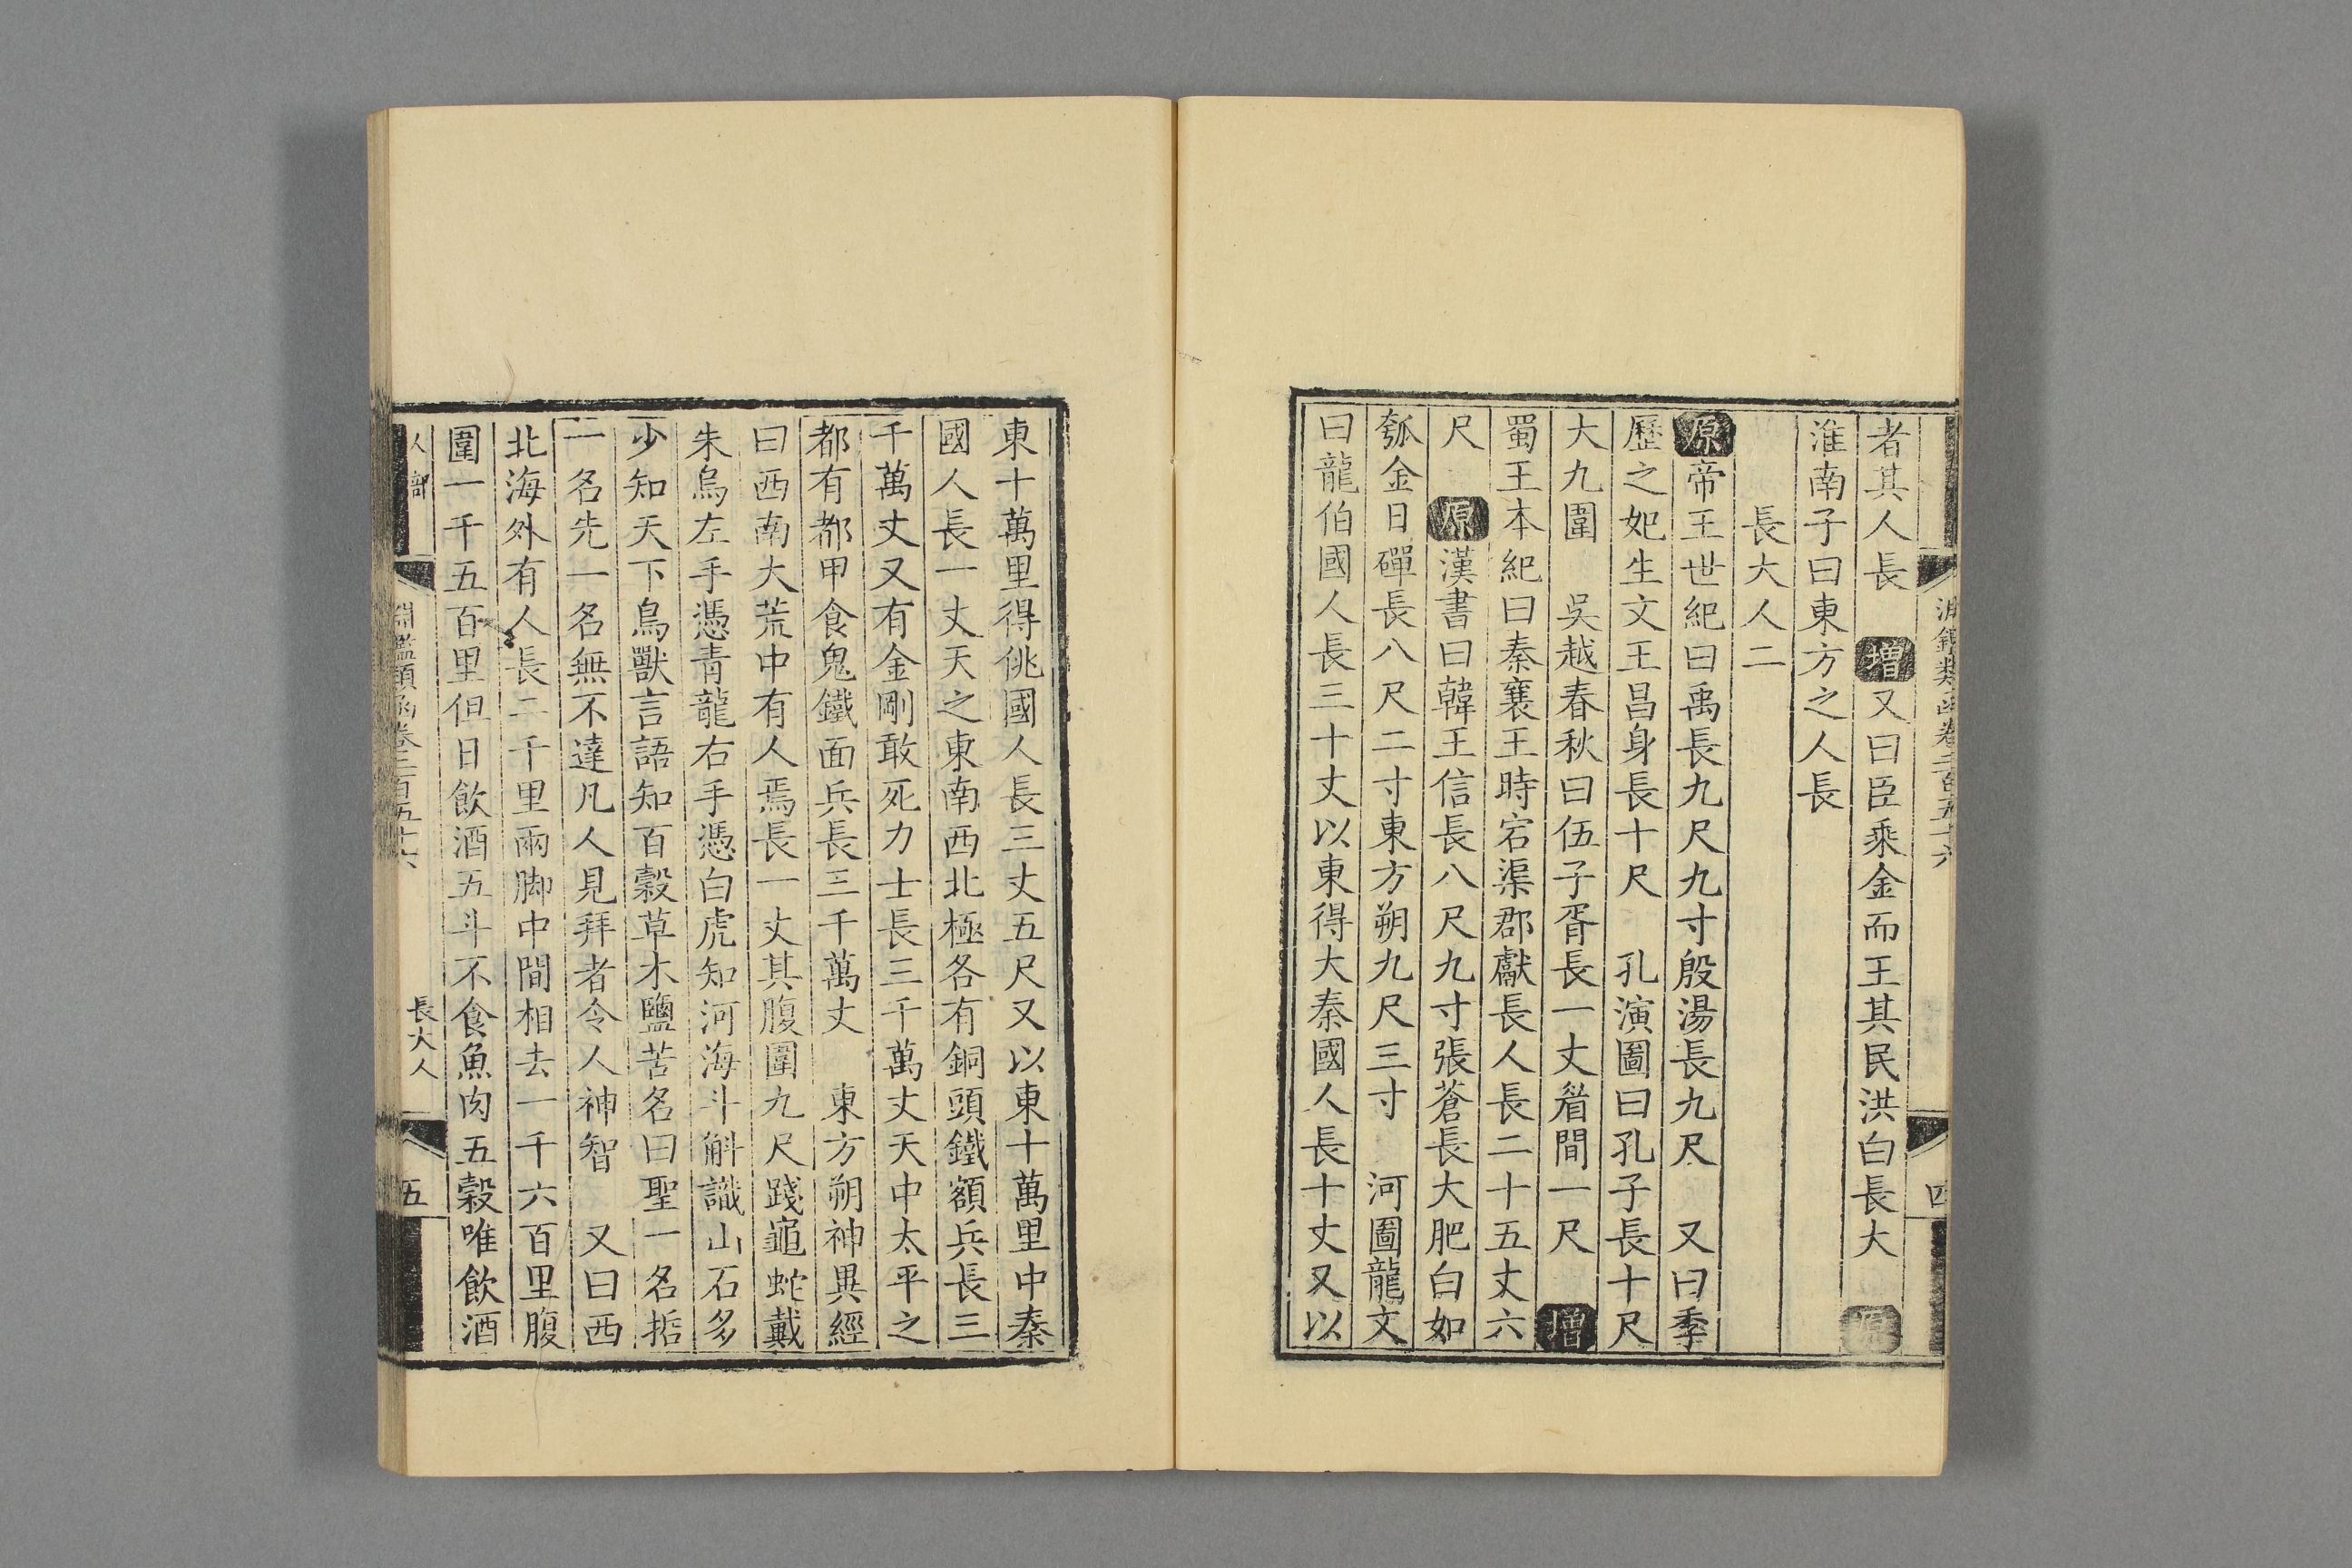 淵鑑類函卷三百五十六
四
者其人長　增又曰臣乘金而王其民洪白長大　原
淮南子曰東方之人長
長大人二
原帝王世紀曰禹長九尺九寸殷湯長九尺　又曰季
歷之妃生文王昌身長十尺　孔演圖曰孔子長十尺
大九圍　吳越春秋曰伍子胥長一丈眉間一尺　增
蜀王本紀曰秦襄王時宕渠郡獻長人長二十五丈六
尺　原漢書曰韓王信長八尺九寸張蒼長大肥白如
瓠金日磾長八尺二寸東方朔九尺三寸　河圖龍文
曰龍伯國人長三十丈以東得大秦國人長十丈又以
東十萬里得佻國人長三丈五尺又以東十萬里中秦
國人長一丈天之東南西北極各有銅頭鐵額兵長三
千萬丈又有金剛敢死力士長三千萬丈天中太平之
都有都甲食鬼鐵面兵長三千萬丈　東方朔神異經
曰西南大荒中有人焉長一丈其腹圍九尺踐龜蛇戴
朱鳥左手憑青龍右手憑白虎知河海斗斛識山石多
少知天下鳥獸言語知百穀草木鹽苦名曰聖一名哲
一名先一名無不達凡人見拜者令人神智　又曰西
北海外有人長二千里兩脚中間相去一千六百里腹
圍一千五百里但日飲酒五斗不食魚肉五穀唯飲酒
人部
淵鑑類函卷三百五十六
長大人
五